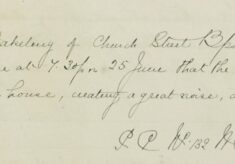 of Church Street
at 7.30pm 25 June that the
house, creating a great noise,
P.C. No. 132